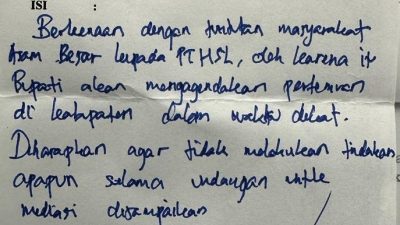 ISI :
Berkenaan dengan tuntutan masyarakat
Asam Besar kepada PT HSL, oleh karena it
Bupati akan mengagendakan pertemuan
di kabupaten dalam waktu dekat.
Diharapkan agar tidak melakukan tindakan
apapun selama undangan untuk
mediasi disampaikan